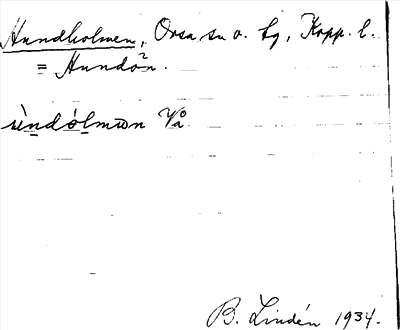 Hundholmen, Orsa sn o. tg, Kopp. l.
= Hundön.
Vå
B. Lindén 1934.